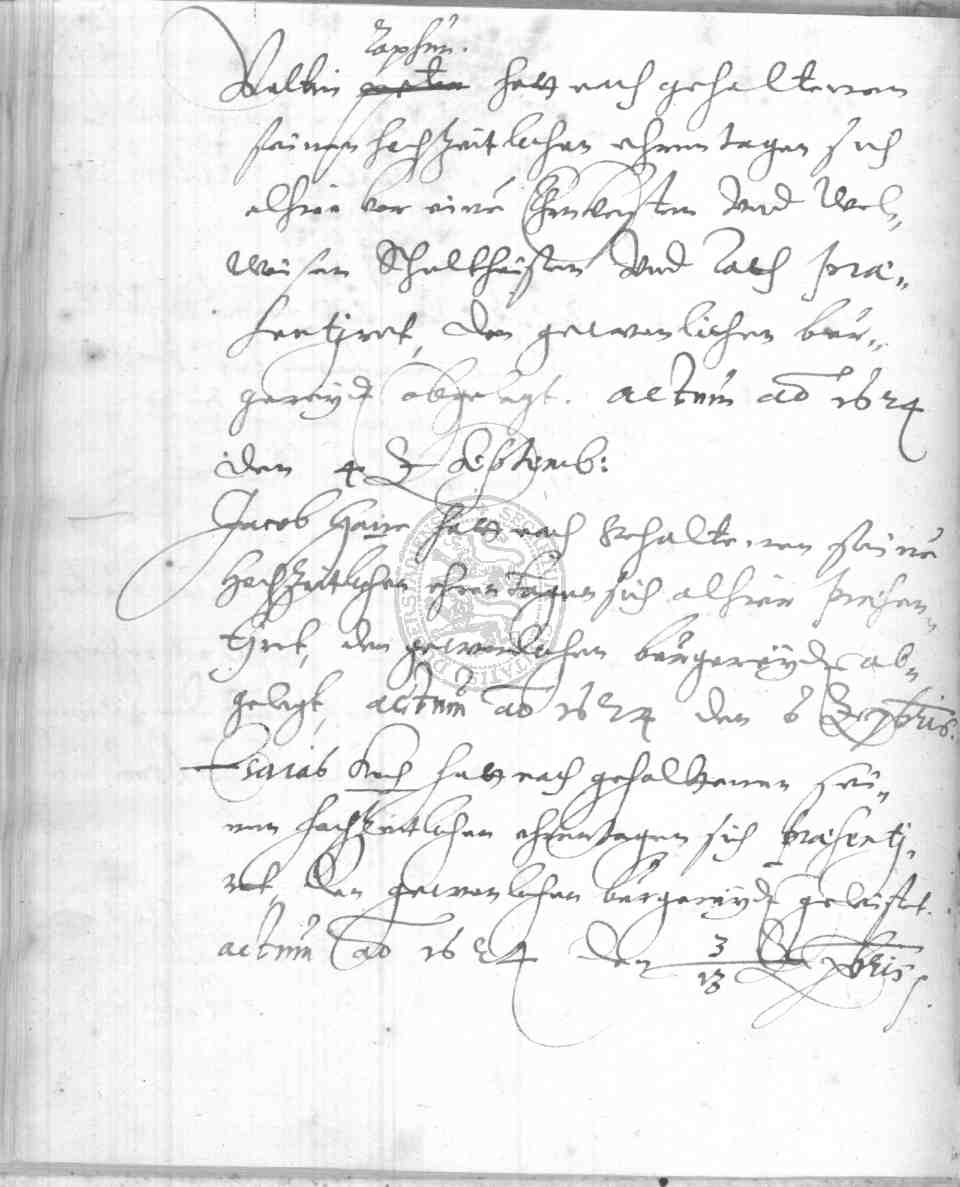 Zapfen.
Velttin hatt nach gehaltenen
seinen hochzeitlichen ehrentagen sich
alhier vor eine Ehrnvesten vnd Wol„
weisen Schultheisen vnd Rath præ„
sentiret, den gewonlichen bur„
gereyd abgelegt. Actum ao 1624
den 4 Septemb:
Jacob hatt nach gehaltenen seine
Hochzeitlichen ehren tagen sich alhier presen„
tiret, den gewonlichen burgereyd ab„
gelegt, actum ao 1624 den 6 Septbris.
Esaias Koch hatt nach gehaltenen sei„
nen hochzeitlichen ehrentagen sich præsenti„
ret, den gewonlichen burgereyd geleistet.
actum ao 1624 den 3/13 Septbris